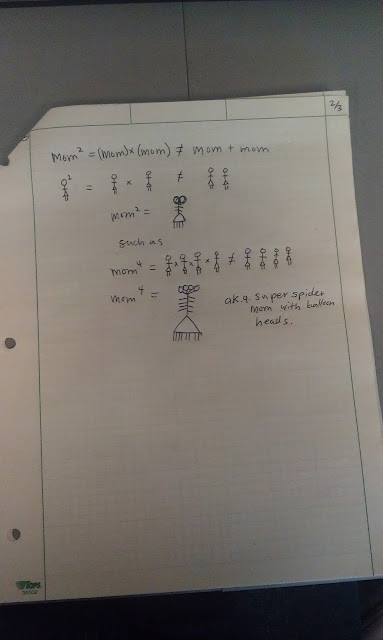 2/3
Mom² = (mom)×(mom) ≠ mom + mom
² = × ≠
mom² =
such as
mom⁴ = × × × ≠
mom⁴ = a.k.a. super spider
mom with balloon
heads.
TOPS